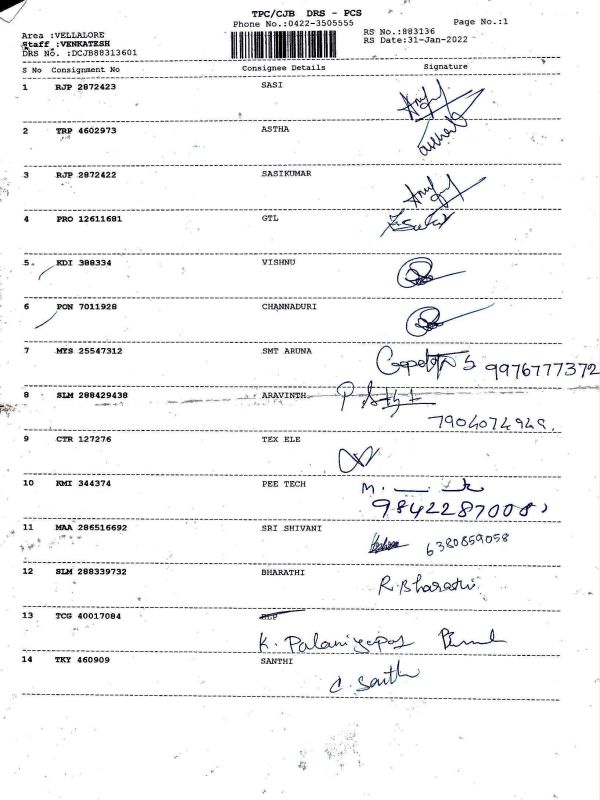 TPC/CJB DRS - PCS
Phone No.:0422-3505555 Page No.:1
Area :VELLALORE RS No.:883136
Staff :VENKATESH RS Date:31-Jan-2022
DRS No. :DCJB88313601
S No Consignment No Consignee Details Signature
1 RJP 2872423 SASI
2 TRP 4602973 ASTHA
3 RJP 2872422 SASIKUMAR
4 PRO 12611681 GTL
5 KDI 388334 VISHNU
6 PON 7011928 CHANNADURI
7 MYS 25547312 SMT ARUNA
9976777372
8 SLM 288429438 ARAVINTH
7904074949.
9 CTR 127276 TEX ELE
10 KMI 344374 PEE TECH
9842287008
11 MAA 286516692 SRI SHIVANI
6380859058
12 SLM 288339732 BHARATHI
R.Bharathi
13 TCG 40017084
14 TKY 460909 SANTHI